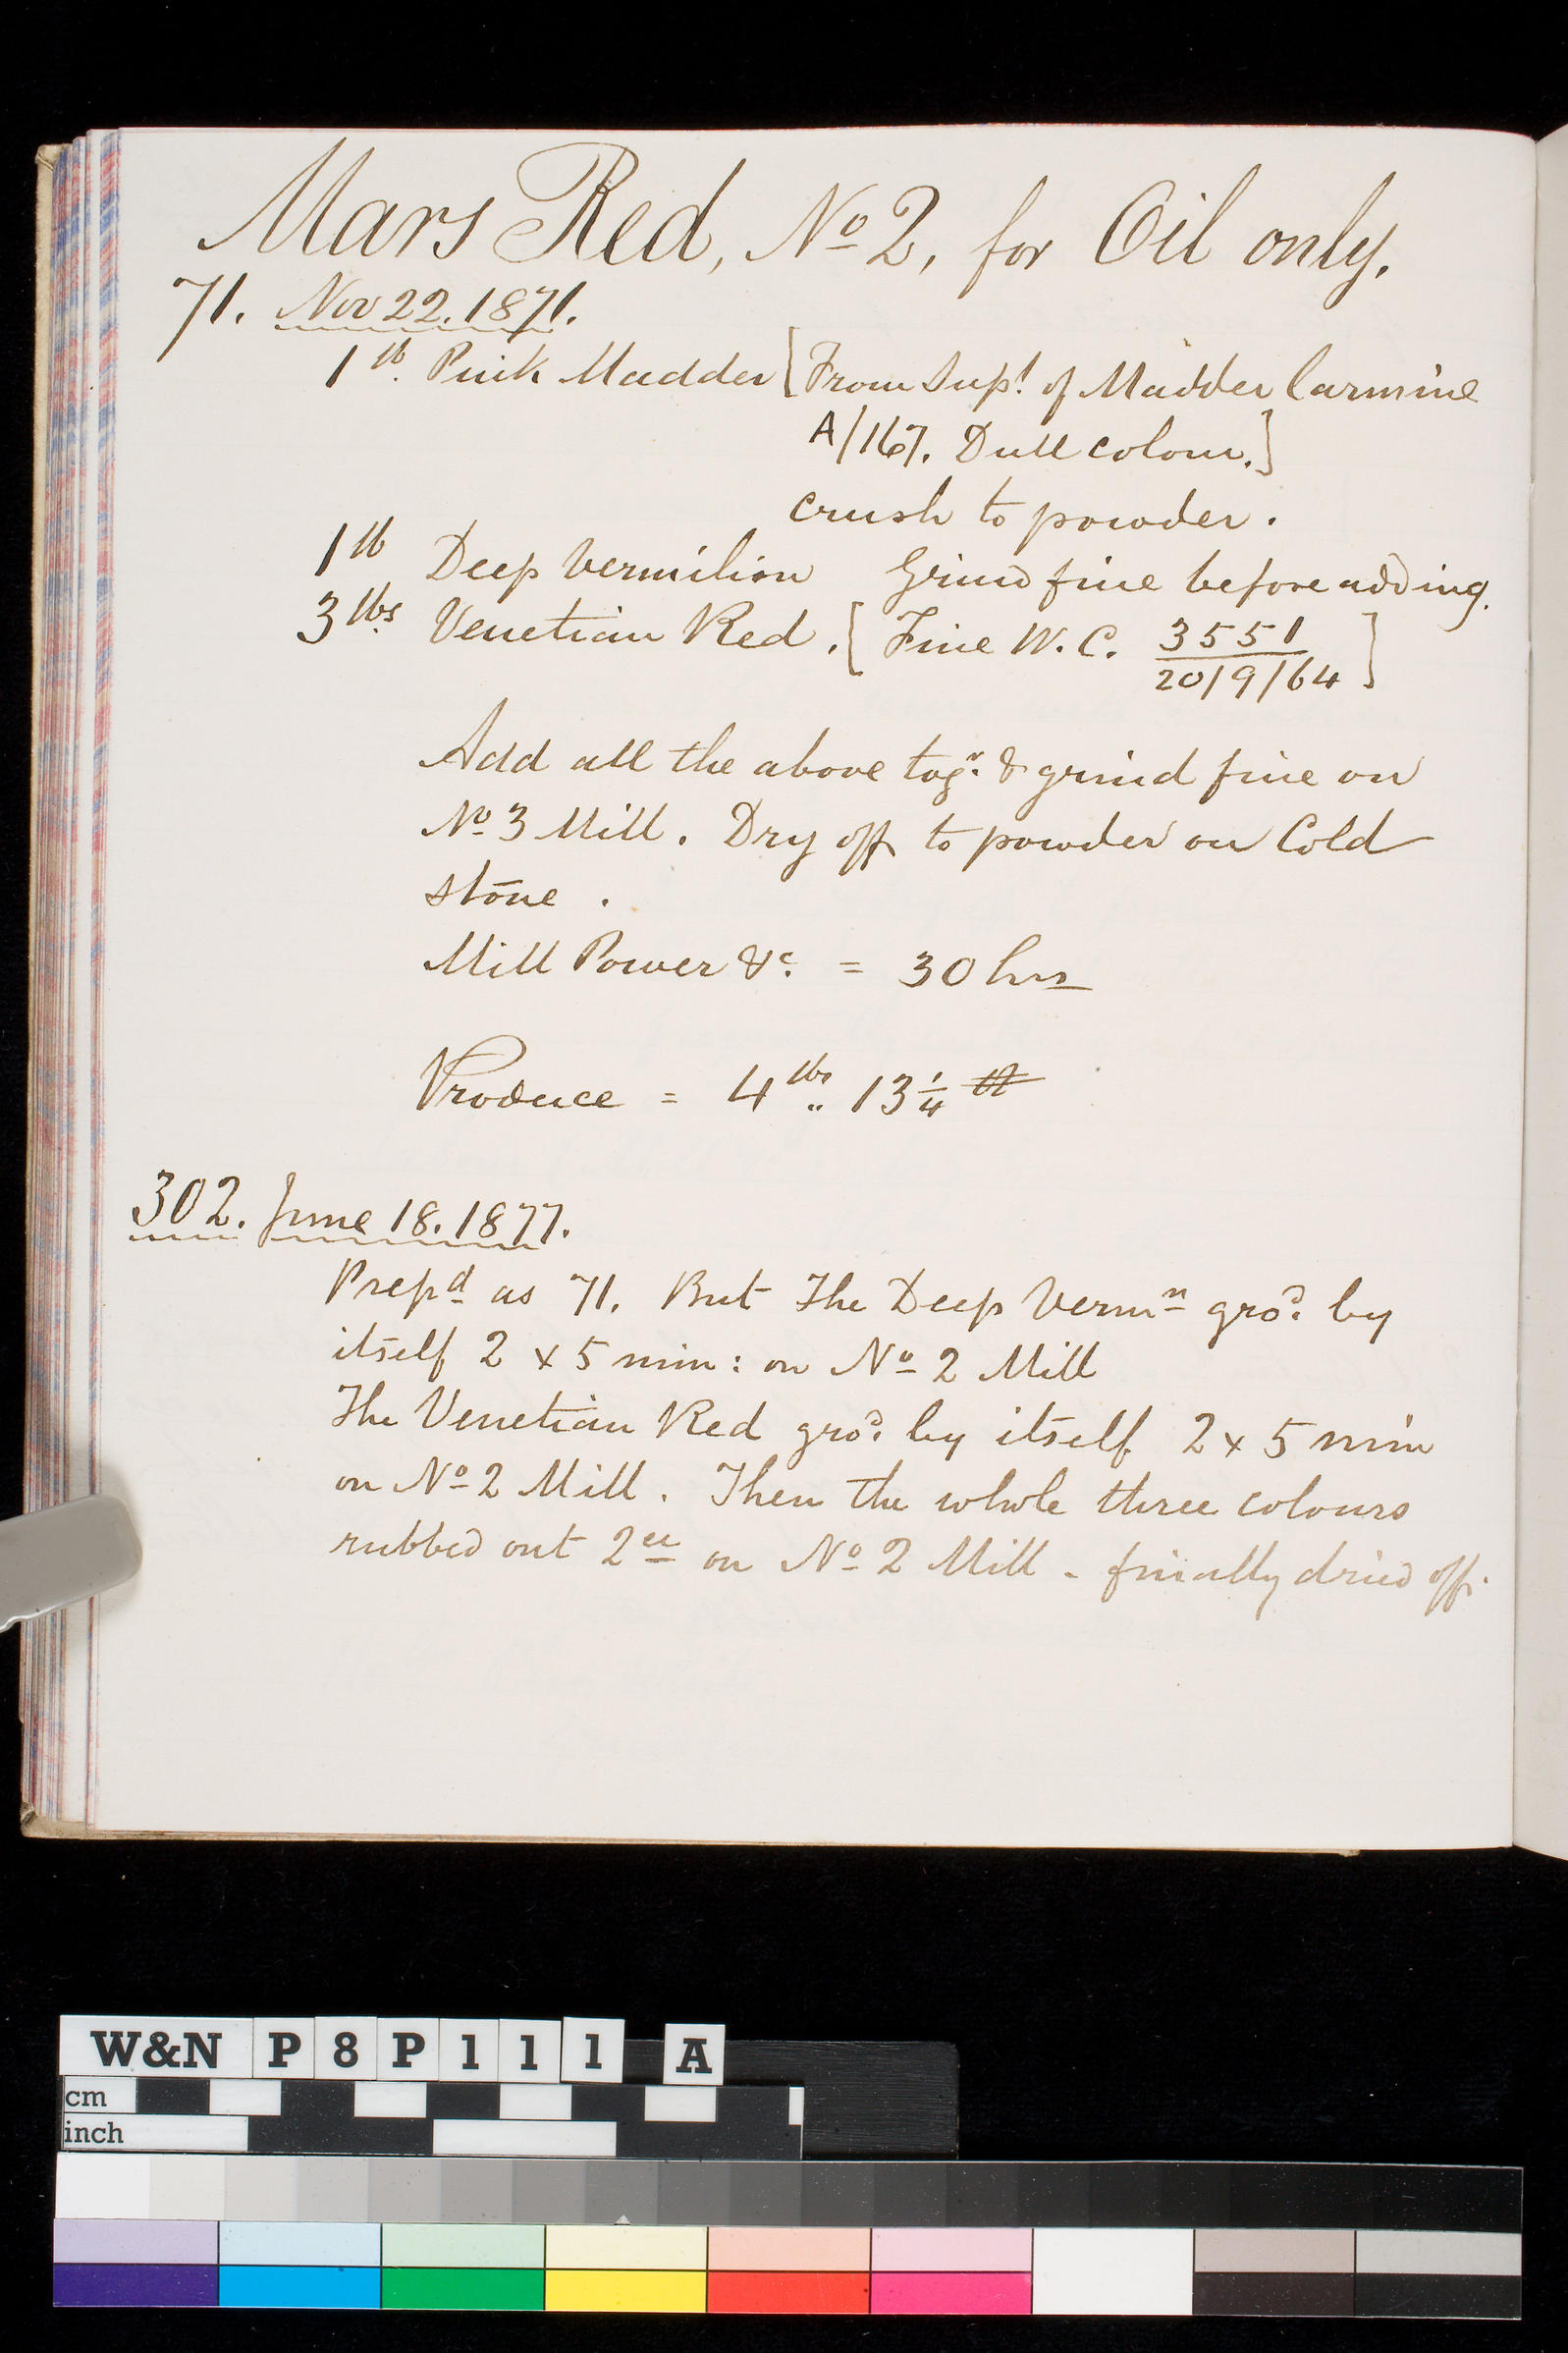 Mars Red, No 2, for Oil only.
71. Nov 22. 1871.
1 lb. Pink Madder [From Supt. of Madder Carmine
A/167. Dull colour.]
crush to powder.
1 lb Deep Vermilion Grind fine before adding.
3 lbs Venetian Red. [Fine W. C. 3551
20/9/64]
Add all the above togr. & grind fine on
No 3 Mill. Dry off to powder on Cold
stone.
Mill Power &c. = 30 hrs
Produce = 4 lbs .. 13 1/4
302. June 18. 1877.
Prepd as 71. But The Deep Vermn grod. by
itself 2 x 5 min: on No 2 Mill
The Venetian Red grod. by itself 2 x 5 min
on No 2 Mill. Then the whole three colours
rubbed out 2ce on No 2 Mill - finally dried off.
W&N P8P111 A
cm
inch